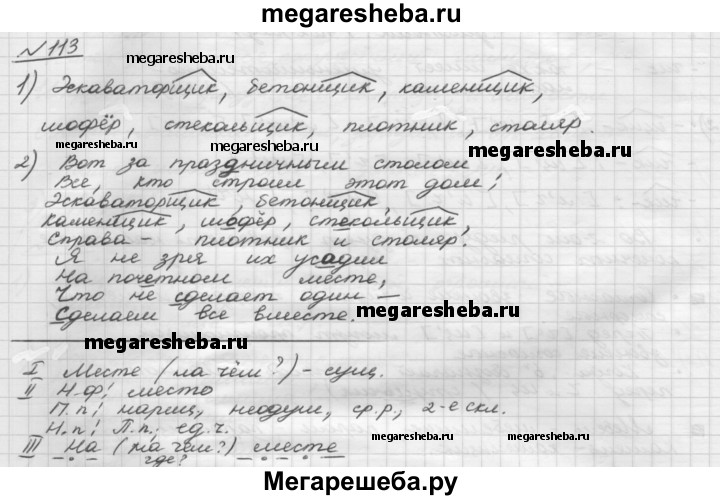 megaresheba.ru
№113
megaresheba.ru
1) Экскаваторщик, бетонщик, каменщик,
megaresheba.ru
шофёр, стекольщик, плотник, столяр.
megaresheba.ru
2) Вот за праздничным столом
Все, кто строил этот дом:
megaresheba.ru
Экскаваторщик, бетонщик,
Каменщик, шофёр, стекольщик,
Справа – плотник и столяр.
Я не зря их усадил
megaresheba.ru
На почётном месте,
Что не сделает один –
Сделаем все вместе.
megaresheba.ru
megaresheba.ru
I Месте (на чём?) – сущ.
II Н.ф: место
П.п: нариц, неодуш, ср.р., 2-е скл.
Н.п: П.п; ед.ч.
III На (на чём?) месте
где?
megaresheba.ru
Мегарешеба.ру